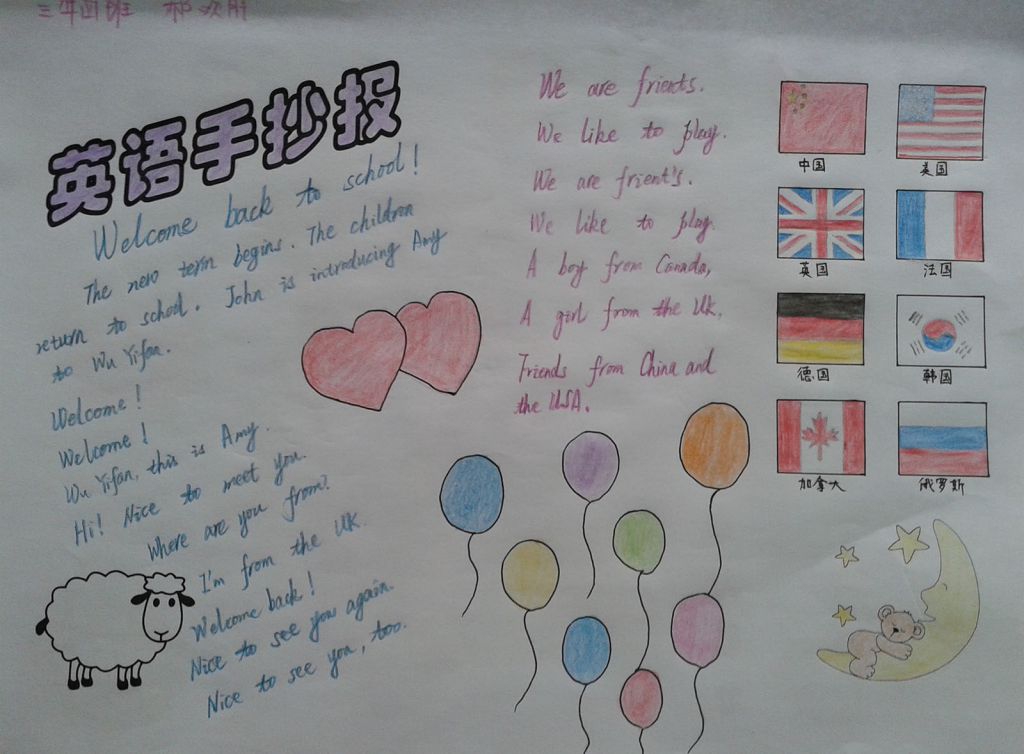 三年四班
英语手抄报
Welcome back to school!
The new term begins. The children
return to school. John is introducing Amy
to Wu Yifan.
Welcome!
Welcome!
Wu Yifan, this is Amy.
Hi! Nice to meet you.
Where are you from?
I'm from the UK.
Welcome back!
Nice to see you again.
Nice to see you, too.
We are frients.
We like to play.
We are frient's.
We like to play.
A boy from Canada,
A girl from the UK,
Friends from China and
the USA.
中国
美国
英国
法国
德国
韩国
加拿大
俄罗斯